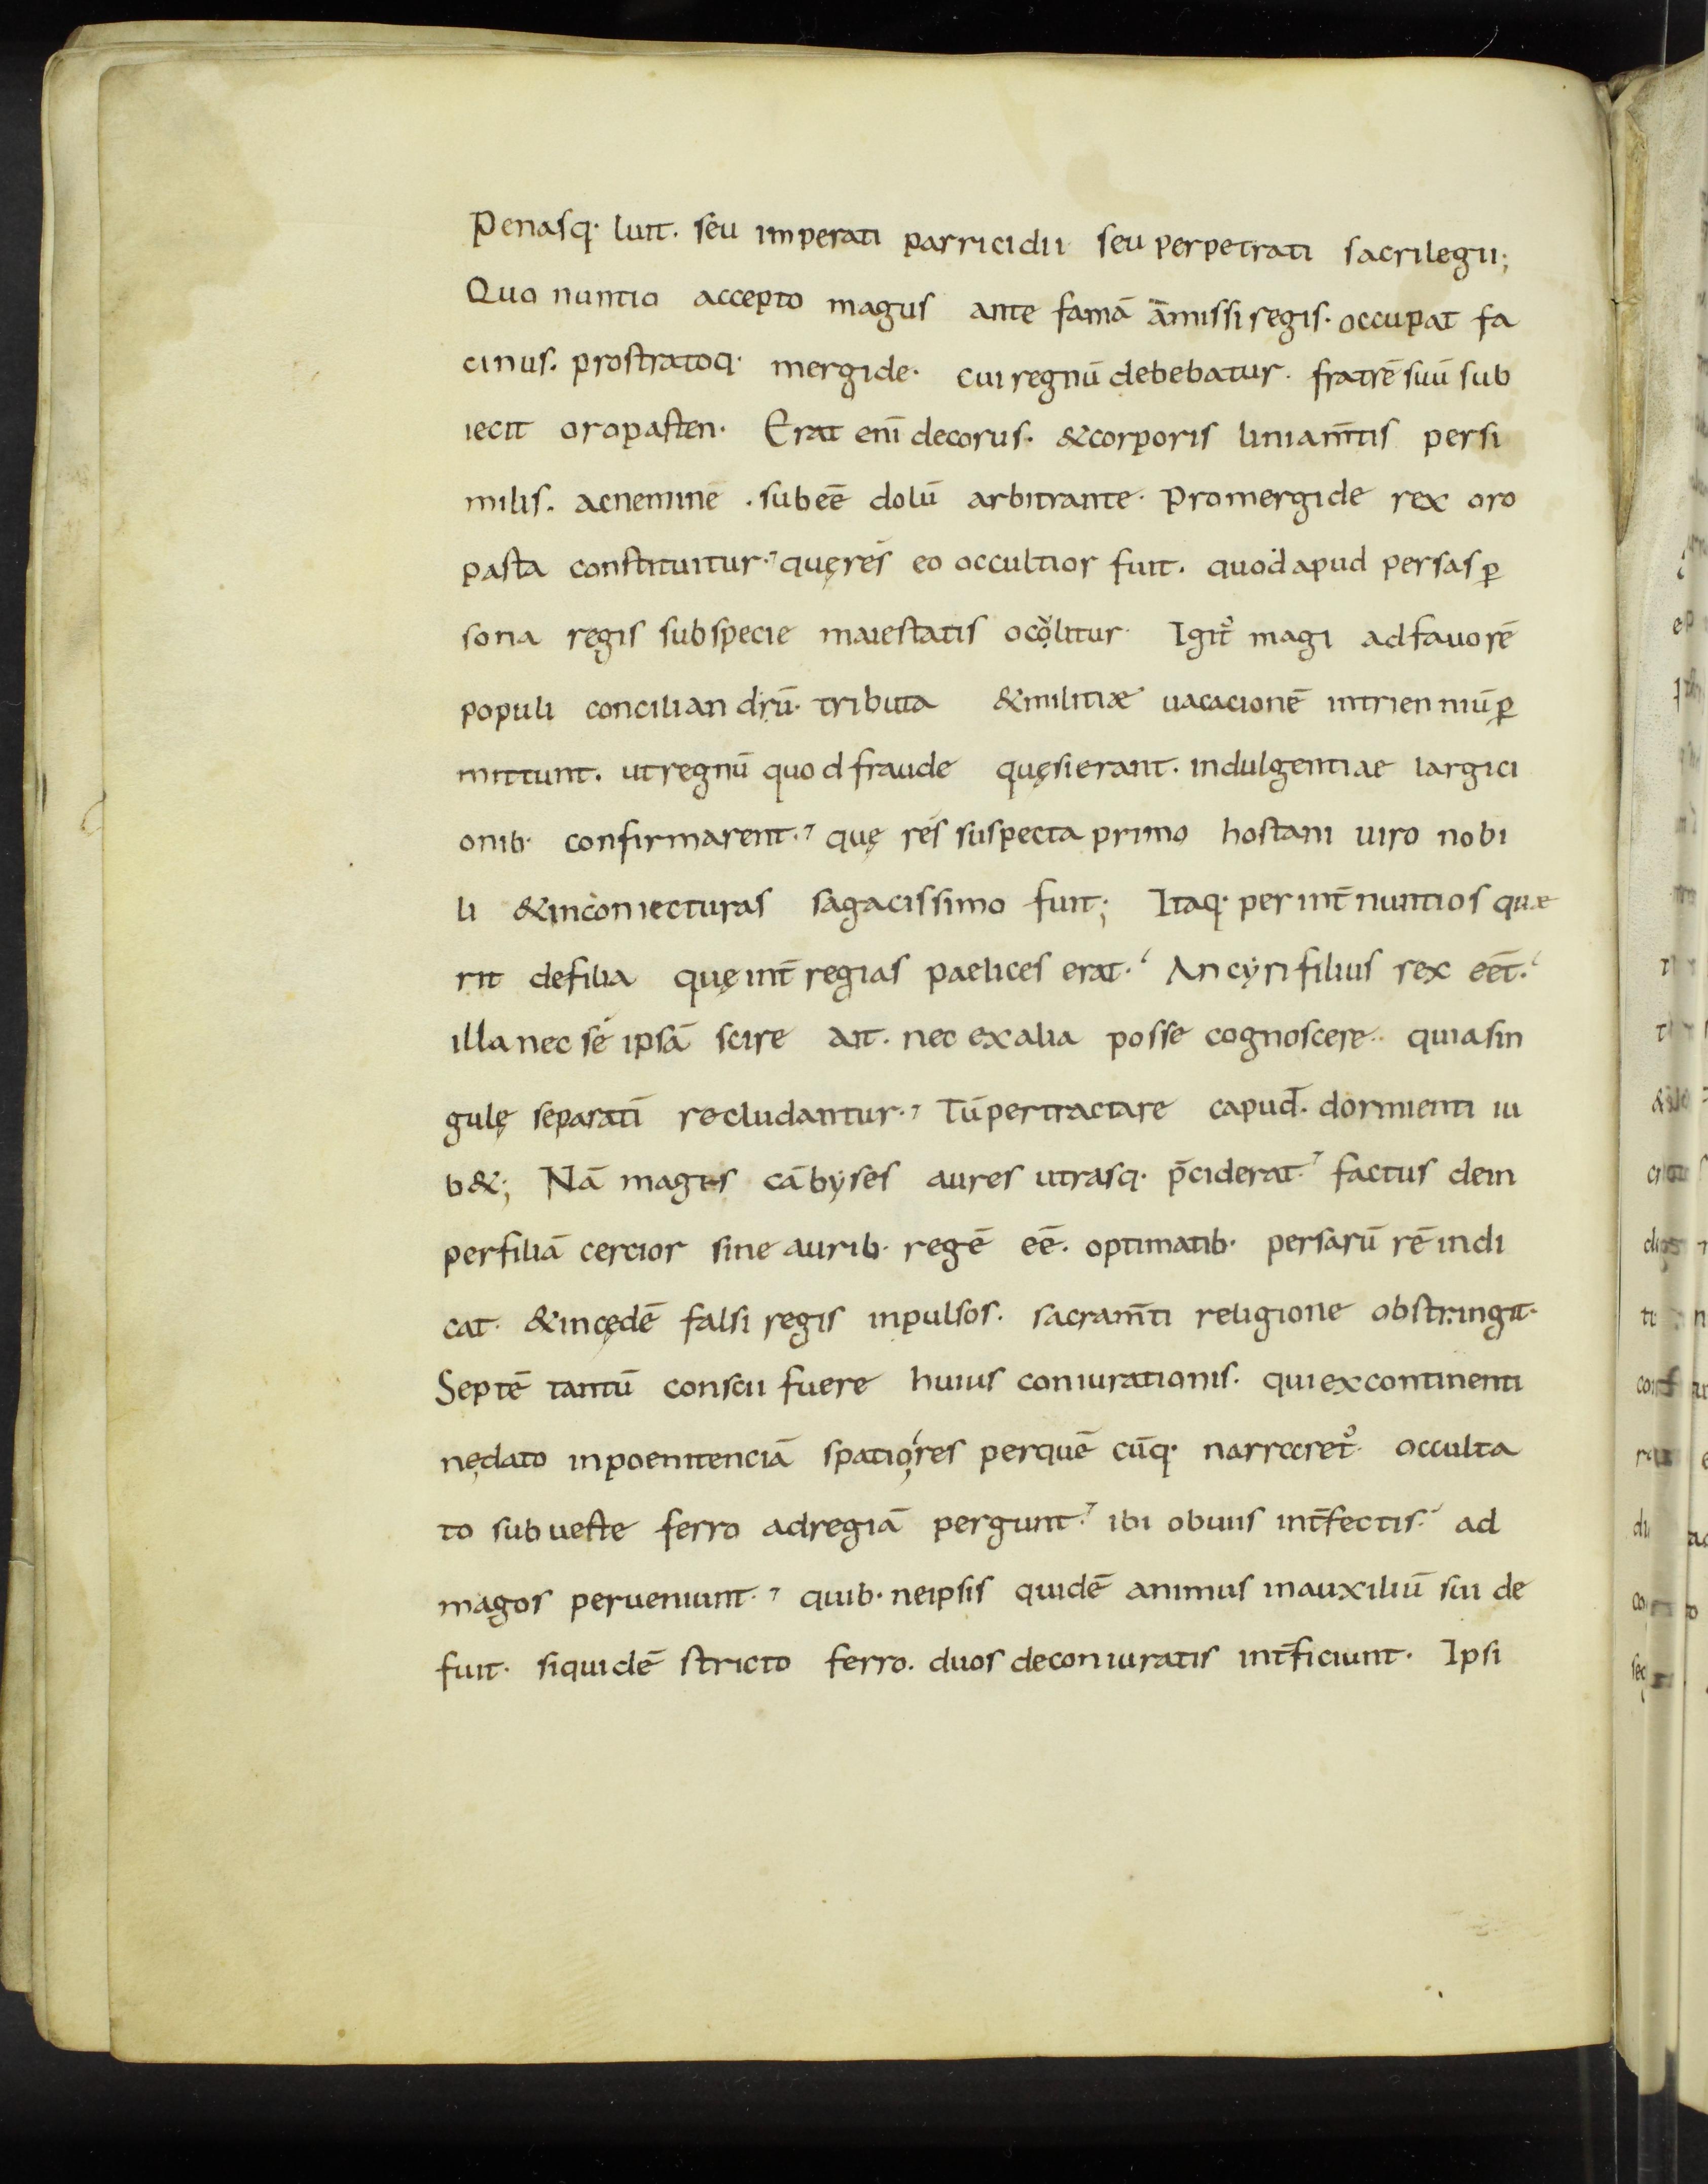 Penasq· luit. seu imperati parricidii seu perpetrati sacrilegii;
Quo nuntio accepto magus ante famā āmissi regis. occupat fa
cinus. prostratoq· mergide. cui regnū debebatur. fratrē suū sub
iecit oropasten. Erat enī decorus. & corporis liniam̄tis persi
milis. ac nemine . subeē dolū arbitrante. Pro mergide rex oro
pasta constituitur. quę res eo occultior fuit. quod apud persas ꝑ
sona regis sub specie maiestatis ocolitur. Igit᷒ magi ad fauorē
populi conciliandrū. tributa & militiæ uacacionē in trienniū ꝑ
mittunt. ut regnū quod fraude quęsierant. indulgentiae largici
onib· confirmarent. quę res suspecta primo hostani uiro nobi
li & in coniecturas sagacissimo fuit; Itaq· per int̄ nuntios quæ
rit de filia quę int̄ regias paelices erat. An cyri filius rex eēt.
illa nec se ipsā scire ait. nec ex alia posse cognoscere. quia sin
gulę separatī recludantur. Tū pertractare capud. dormienti iu
b&; Nā magus cābyses aures utrasq· p̄ciderat. factus dein
per filiā cercior sine aurib· regē eē. optimatib· persarū rē indi
cat. & in cędē falsi regis inpulsos. sacram̄ti religione obstringit.
Septē tantū conscii fuere huius coniurationis. qui ex continenti
nędato in poenitenciā spatiores per quē cūq· narraret᷒. occulta
to sub ueste ferro ad regiā pergunt. ibi obuiis int̄fectis. ad
magos perueniunt. quib· ne ipsis quidē animus in auxiliū sui de
fuit. siquidē stricto ferro. duos de coniuratis int̄ficiunt. Ipsi